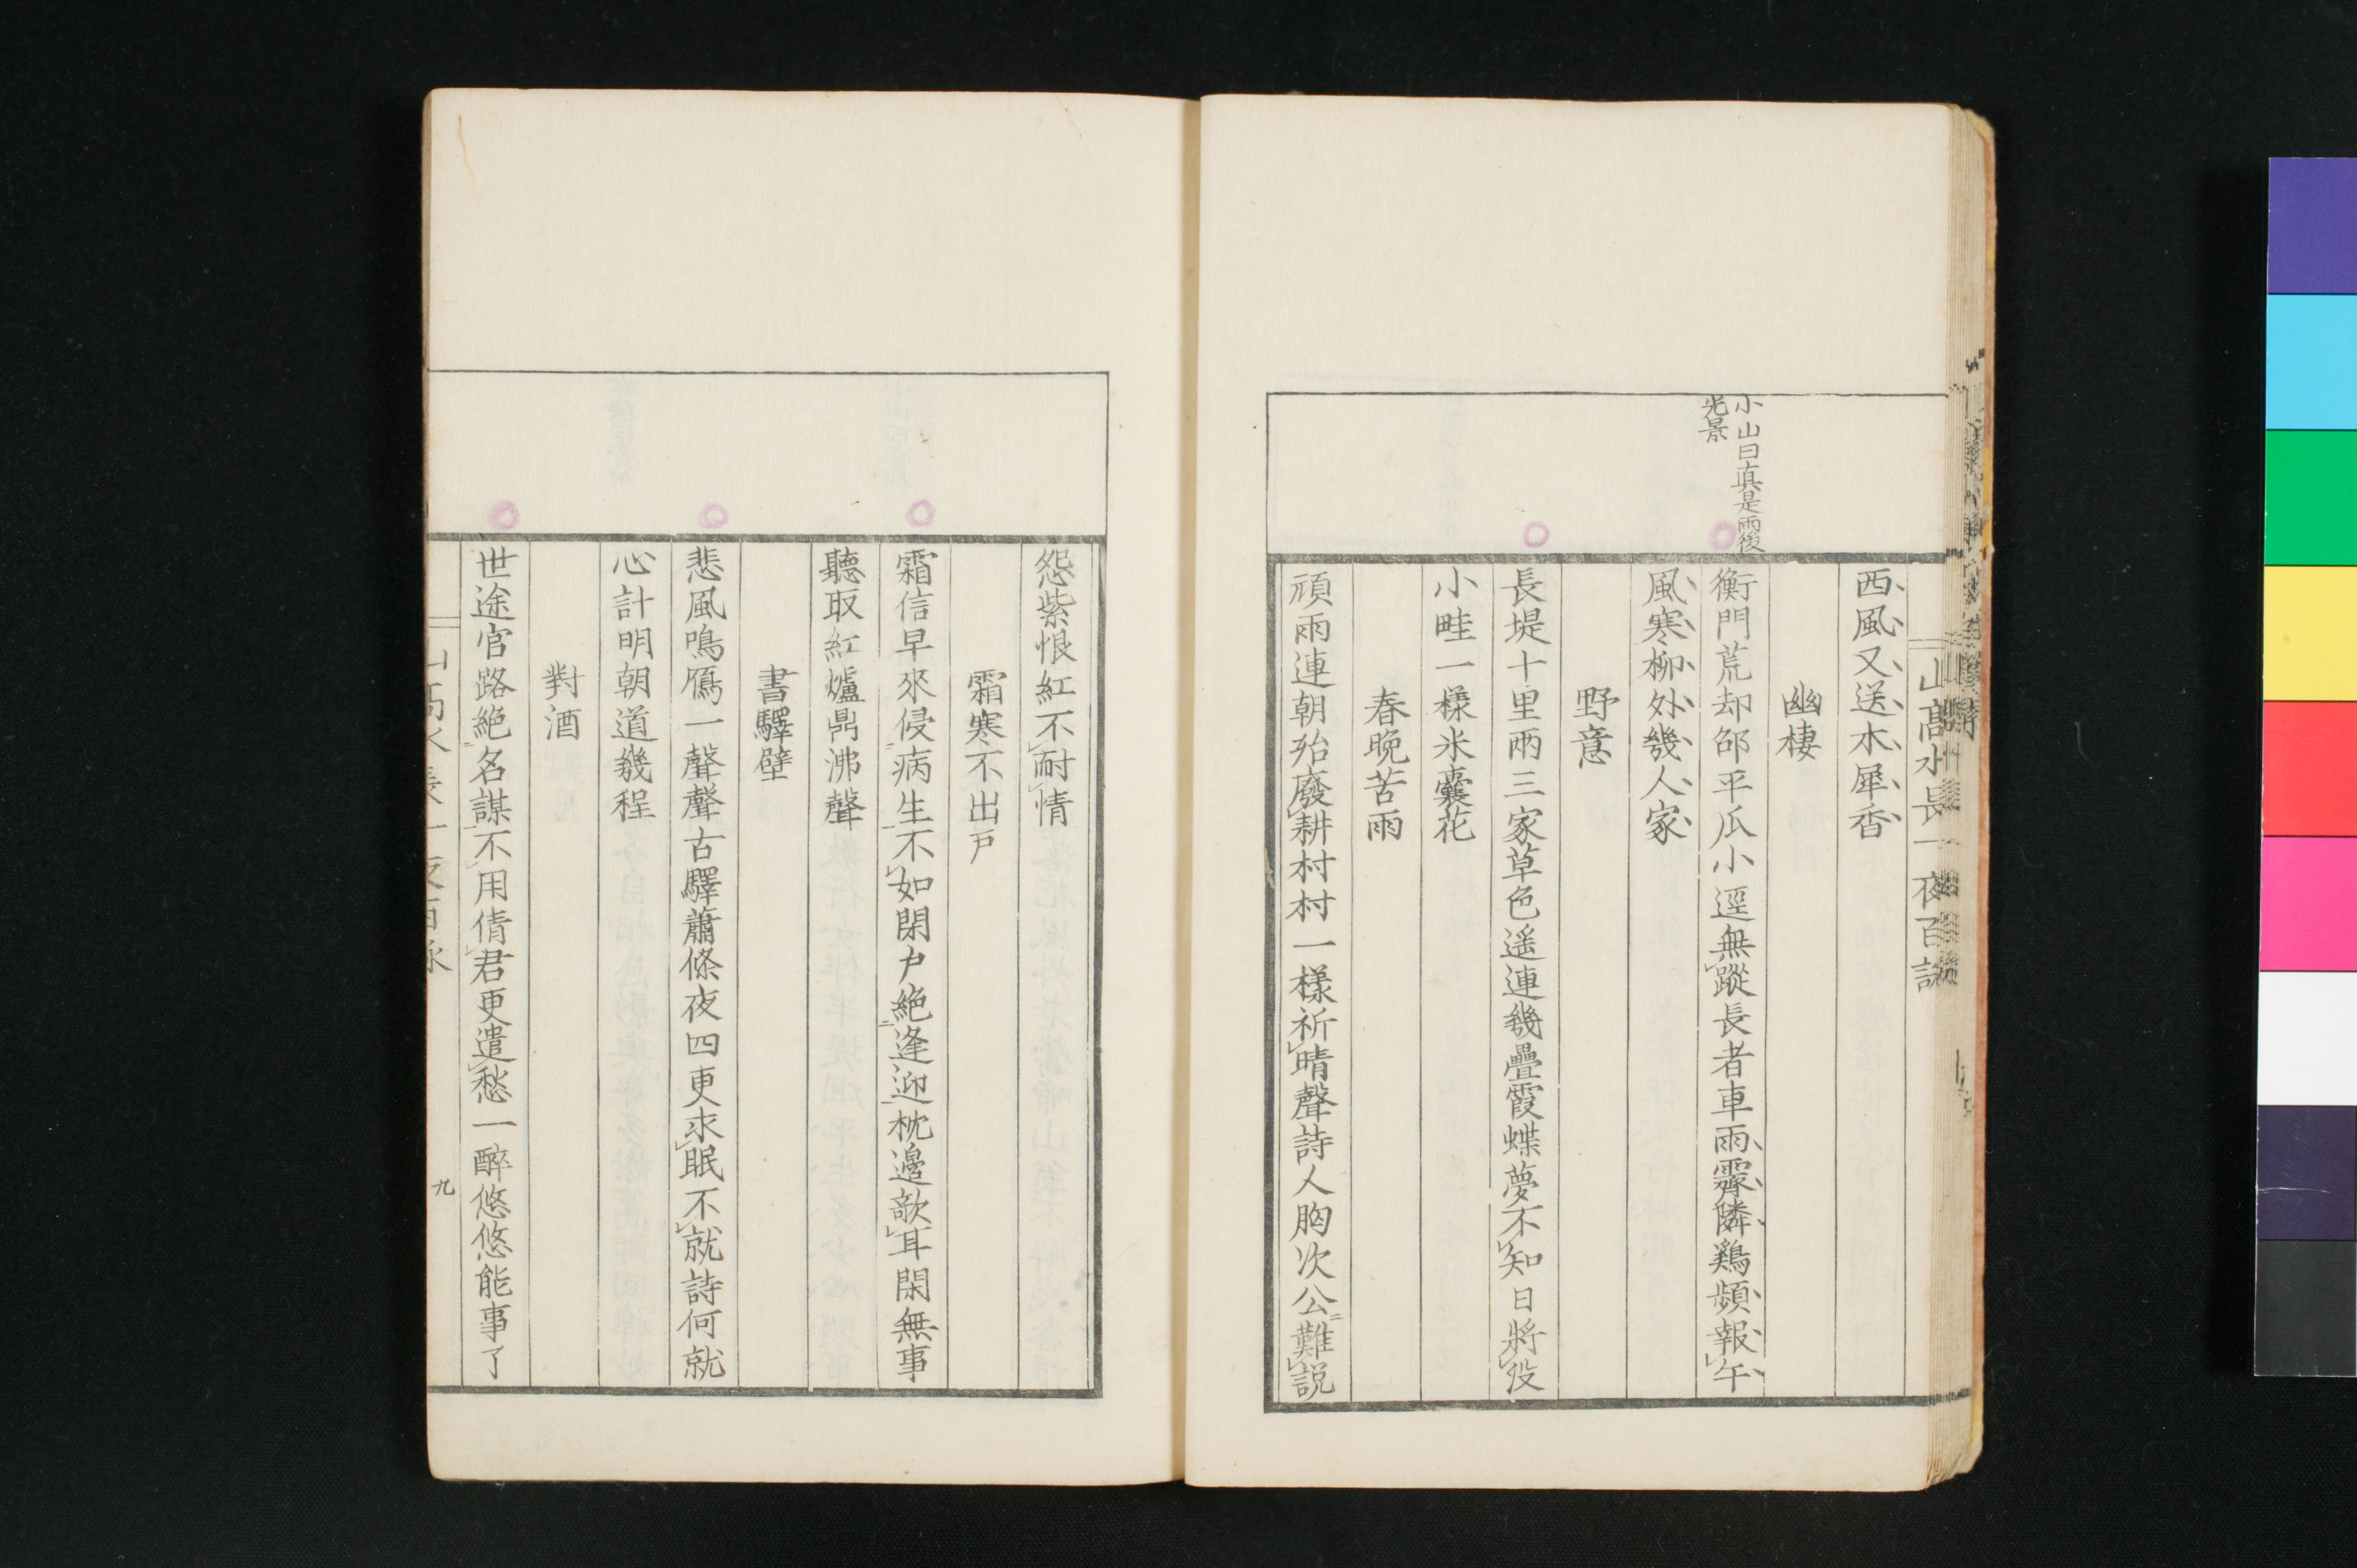 山高水長一夜百詠
西風又送木犀香
幽棲
小山曰真是雨後
光景
衡門荒却邵平瓜小逕無蹤長者車雨霽隣鷄頻報午
風寒柳外幾人家
野意
長堤十里兩三家草色遥連幾疊霞蝶夢不知日將沒
小畦一樣米囊花
春晩苦雨
頑雨連朝殆廢耕村村一樣祈晴聲詩人胸次公難説
怨紫恨紅不耐情
霜寒不出戸
霜信早來侵病生不如閑戸絶逢迎枕邊欹耳閑無事
聽取紅爐鼎沸聲
書驛壁
悲風鳴鴈一聲聲古驛蕭條夜四更求眠不就詩何就
心計明朝道幾程
對酒
世途官路絶名謀不用倩君更遣愁一醉悠悠能事了
山高水長一夜百詠
九